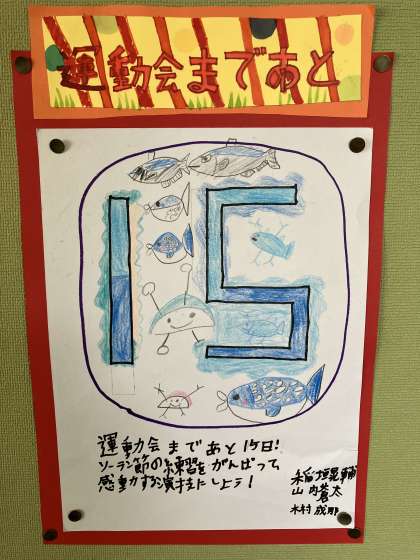 運動会まであと
15
運動会まであと15日!
ソーラン節の練習をがんばって
感動する演技にしよう!
稲垣晃輔
山内蒼太
木村成那